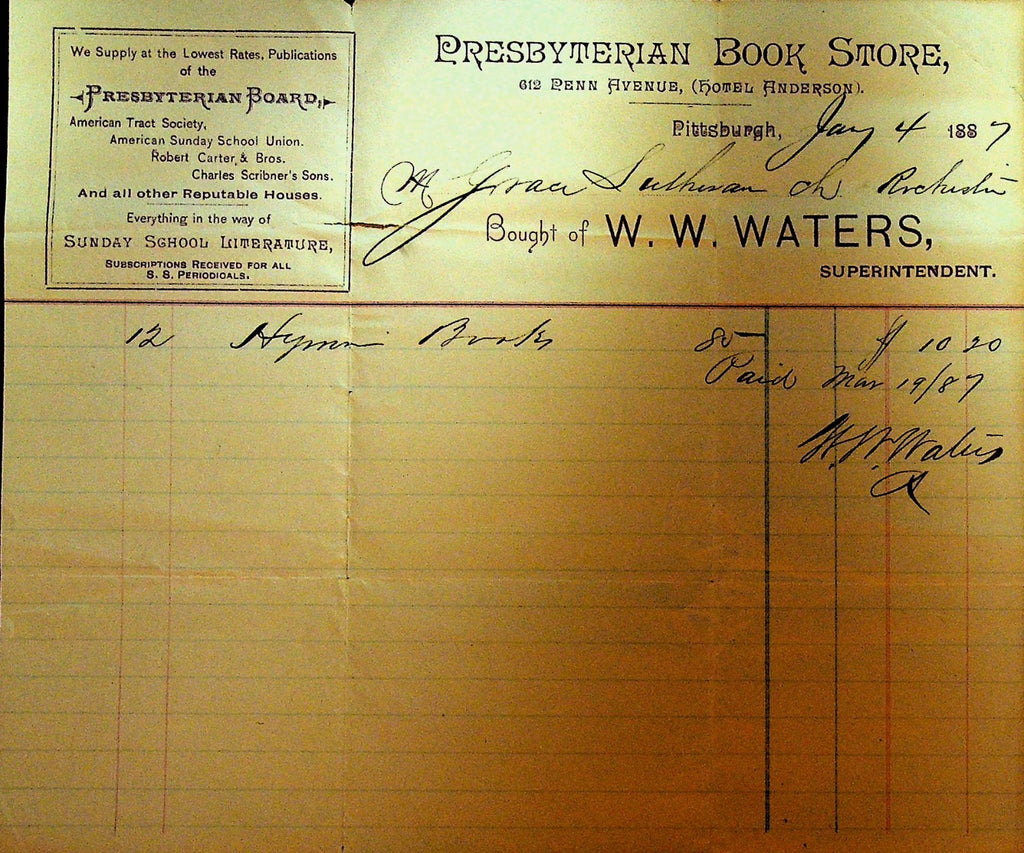 We Supply at the Lowest Rates, Publications
of the
PRESBYTERIAN BOARD,
American Tract Society,
American Sunday School Union.
Robert Carter & Bros.
Charles Scribner's Sons.
And all other Reputable Houses.
Everything in the way of
SUNDAY SCHOOL LITERATURE,
SUBSCRIPTIONS RECEIVED FOR ALL
S. S. PERIODICALS.
PRESBYTERIAN BOOK STORE,
612 PENN AVENUE, (HOTEL ANDERSON).
Pittsburgh, Jany 4 1887
M Grace Lutheran ch Rochester
Bought of W. W. WATERS,
SUPERINTENDENT.
12 Hymn Books 85 $ 10 20
Paid Mar 19/87
W. W. Waters